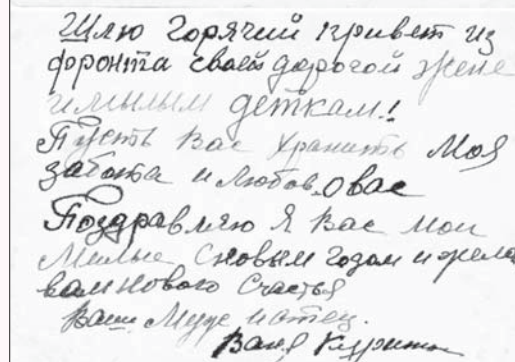 Шлю горячий привет из
фронта своей дорогой жене
и милым деткам!
Пусть Вас хранить Моя
забота и Любов. о вас
Поздравляю Я Вас Мои
Милые с новым годом и жела
вам нового Счастья
Ваш Муж и отец.
Ваня